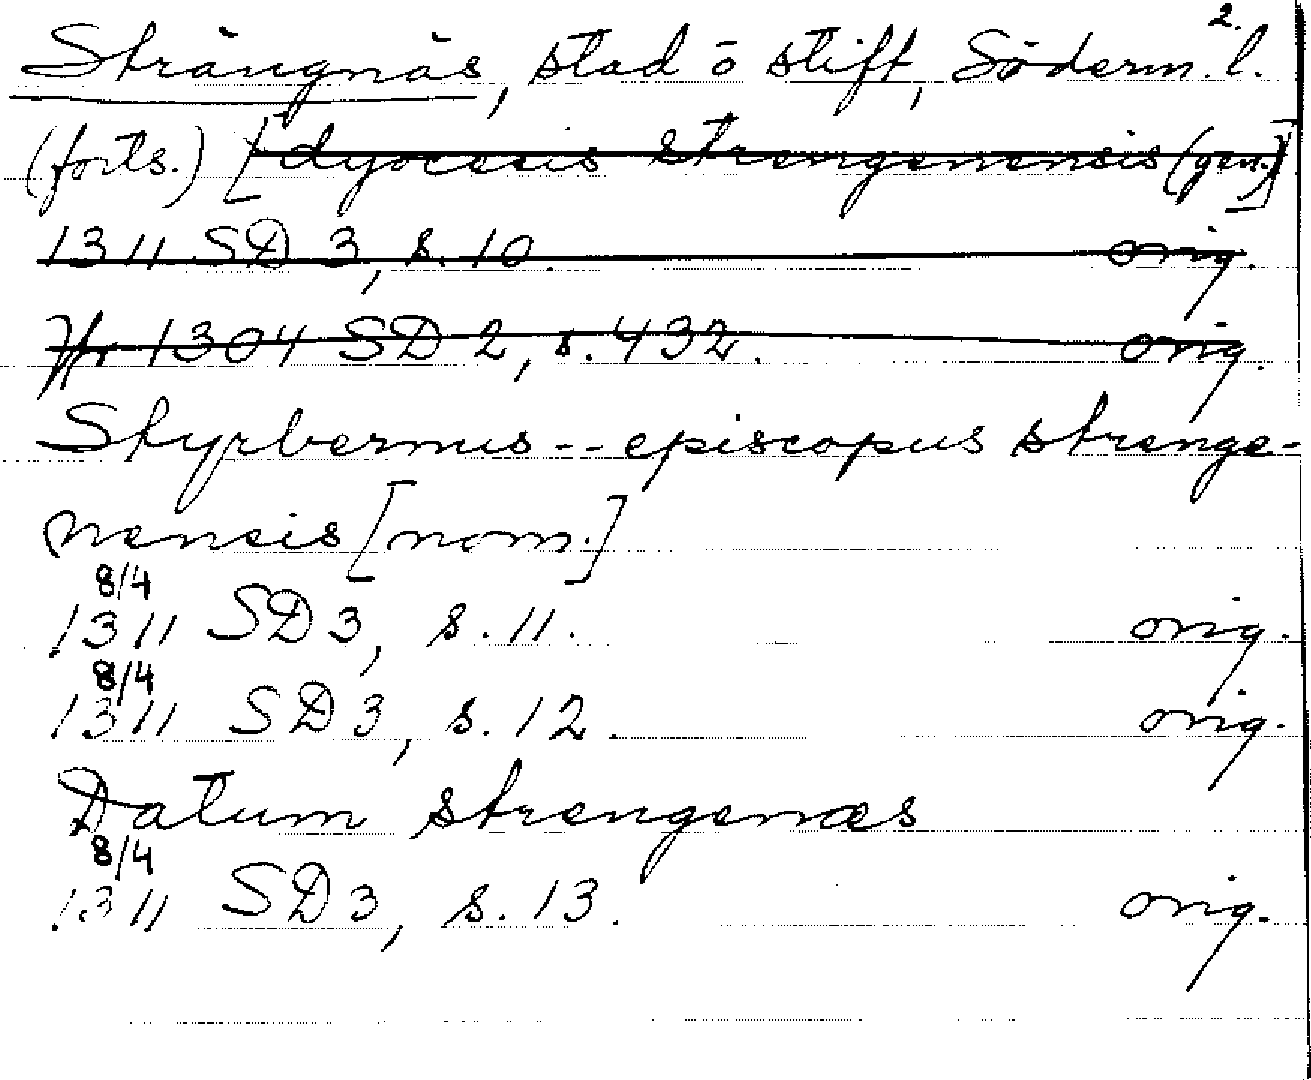 2.
Strängnäs, stad o stift, Söderm. l.
(forts.) [dyocesis strengenensis (gen.)]
1311 SD 3, s. 10. orig.
Jfr 1304 SD 2, s. 432. orig.
Styrbernus -- episcopus strenge-
nensis [nom.]
8/4
1311 SD 3, s. 11. orig.
8/4
1311 SD 3, s. 12. orig.
Datum strengenæs
8/4
1311 SD 3, s. 13. orig.